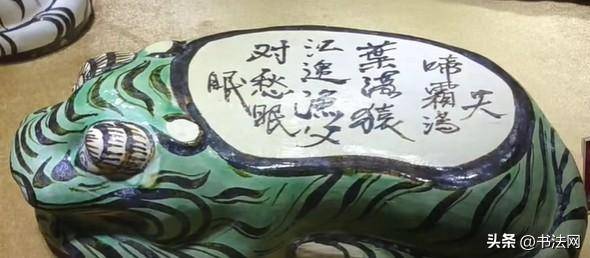 天
啼霜满
葉落猿
江边渔父
对愁眠
眠
头条 @书法网